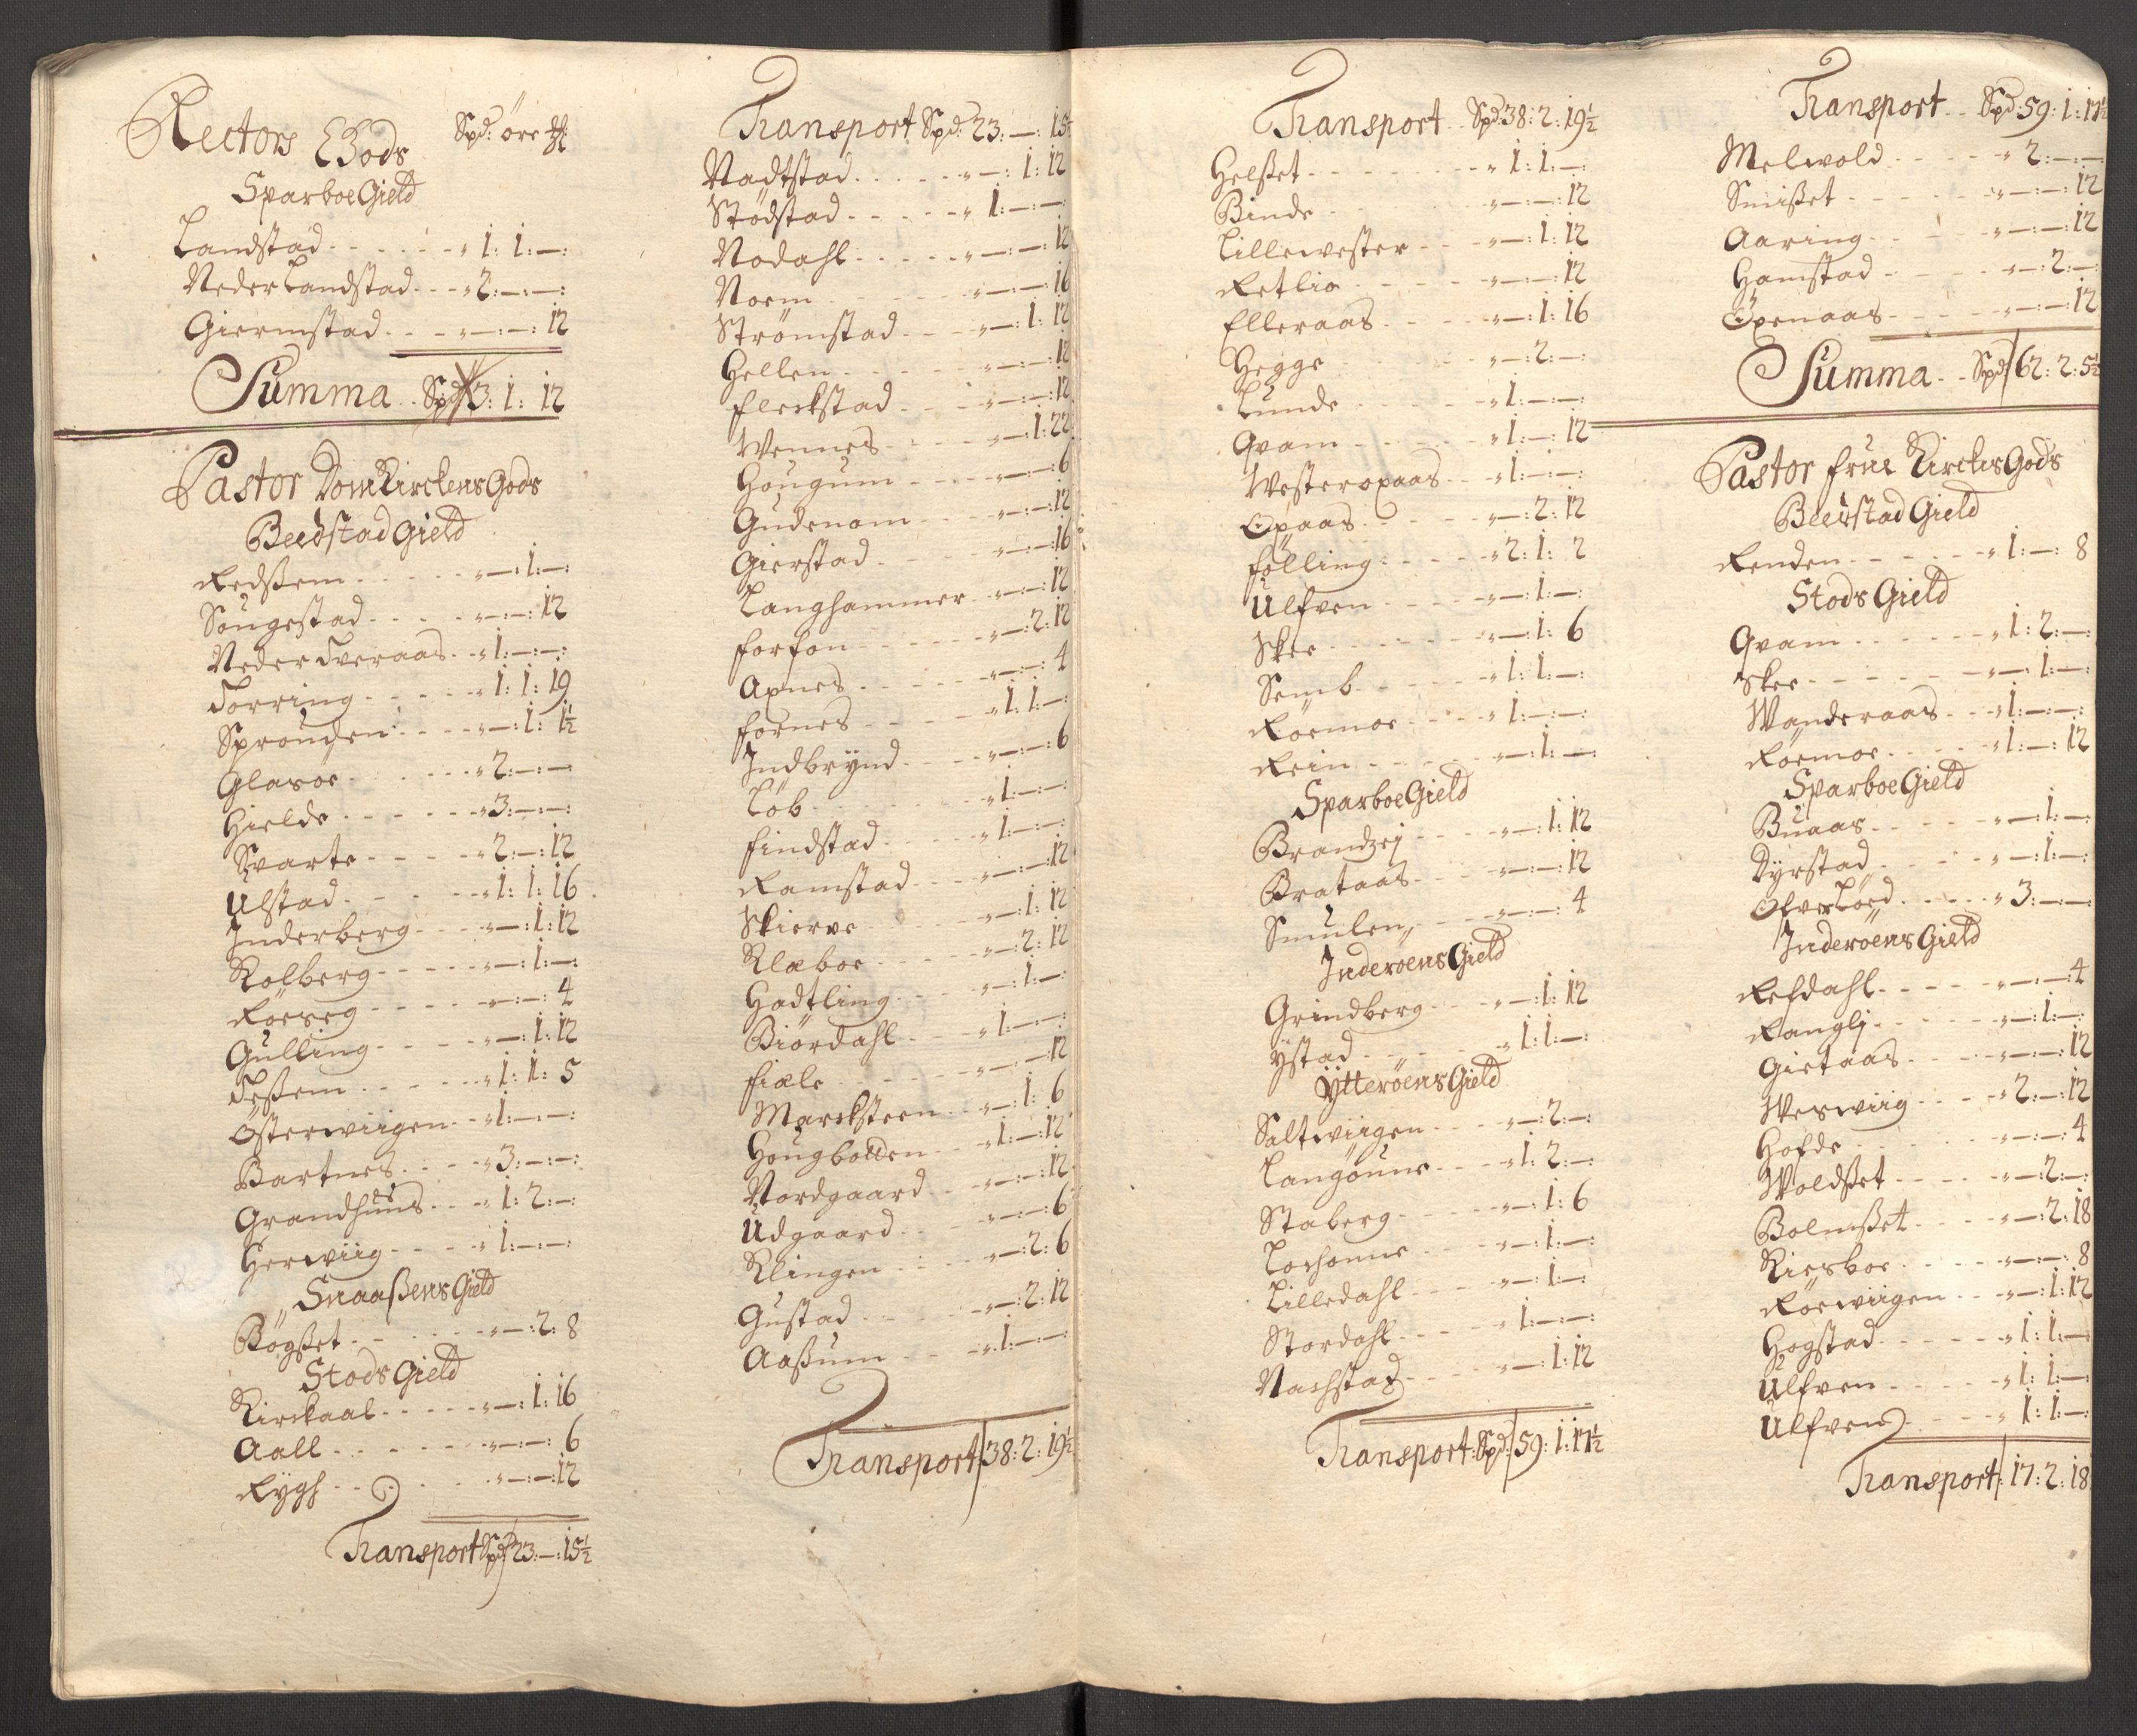 Rectors EGods Spd: öre ₰:
Sparboe Gield
Landstad - - - - - „ 1: 1: —:
Neder Landstad - - „ 2: —: —:
Giermstad - - - „ —: —: 12
Summa - - Spd 3: 1: 12
Pastor DomKirckens Gods
Beedstad Gield
Redssem - - - - - „ —: 1: —:
Sougestad - - - - „ —: —: 12
Neder Tveraas - - „ 1: —: —:
Torring - - - - - „ 1: 1: 19
Sprouden - - - - „ —: 1: 1½
Glasoe - - - - - „ 2: —: —
Hielde - - - - - „ 3: —: —:
Svarte - - - - - „ 2: —: 12
Ulstad - - - - - „ 1: 1: 16
Inderberg - - - - „ —: 1: 12
Kolberg - - - - - „ —: 1: —:
Röeseg - - - - - „ —: —: 4
Gulling - - - - - „ —: 1: 12
Tessem - - - - - „ 1: 1: 5
Österwiigen - - „ 1: —: —:
Bartnes - - - - „ 3: —: —:
Grandhuus - - - „ 1: 2: —:
Herwiig - - - - „ 1: —: —:
Snaassens Gield
Bögsset - - - - - „ —: 2: 8
Stods Gield
Kirckaal - - - - - „ —: 1: 16
Aall - - - - - - „ —: —: 6
Rygh - - - - - „ —: —: 12
Transport Spd 23: —: 15½
Transport Spd: 23: —: 15½
Nadtstad - - - - - „ —: 1: 12
Stödstad - - - - - „ 1: —: —:
Nodahl - - - - - „ —: —: 12
Noem - - - - - „ —: —: 16
Strömstad - - - - „ —: 1: 12
Hellen - - - - - „ —: —: 12
Fleckstad - - - - „ —: —: 12
Wennes - - - - - „ —: 1: 22
Hougum - - - - - „ —: —: 6
Gudenom - - - - „ —: —: 12
Gierstad - - - - „ —: —: 16
Langhammer - - „ —: —: 12
Forfon - - - - - „ —: 2: 12
Axnes - - - - - „ —: —: 4
Fornes - - - - - „ 1: 1: —:
Indbrÿnd - - - - „ —: —: 6
Löb - - - - - - „ 1: —: —:
Findstad - - - - „ 1: —: —:
Ramstad - - - - „ —: —: 12
Skierve - - - - - „ —: 1: 12
Klæboe - - - - - „ —: 2: 12
Hadtling - - - - „ —: 1: —:
Biördahl - - - - „ 1: —: —:
Fiæle - - - - - „ —: —: 12
Marcksteen - - „ —: 1: 6
Hougbolden - - „ 1: —: 12
Nordgaard - - - „ —: —: 12
Udgaard - - - - „ —: —: 6
Klingen - - - - „ —: 2: 6
Gustad - - - - - „ —: 2: 12
Aassum - - - - - „ 1: —: —:
Transport 38: 2: 19½
Transport - - Spd: 38: 2: 19½
Helsset - - - - - - „ 1: 1: —:
Binde - - - - - - „ —: —: 12
Lillewester - - - „ —: 1: 12
Retlio - - - - - „ —: —: 12
Elleraas - - - - „ —: 1: 16
Hegge - - - - - „ —: 2: —:
Lunde - - - - - „ 1: —: —:
Qvam - - - - - „ 1: —: 12
Westeropaas - - „ 1: —: —:
Opaas - - - - - „ —: 2: 12
Fölling - - - - „ 2: 1: 2
Ulfven - - - - „ —: 1: —:
Skee - - - - - „ —: 1: 6
Semb - - - - - „ 1: 1: —:
Röemoe - - - - „ 1: —: —:
Rein - - - - - „ —: 1: —:
Sparboe Gield
Brandzej - - - - „ —: 1: 12
Brataas - - - - „ —: —: 12
Smulen - - - - „ —: —: 4
Inderöens Gield
Grindberg - - - „ —: 1: 12
Ÿstad - - - - - „ 1: 1: —:
Ÿtteröens Gield
Saltwiigen - - - „ —: 2: —:
Langöune - - - „ 1: 2: —:
Staberg - - - - „ —: 1: 6
Lorhonne - - - - „ —: 1: —:
Lilledahl - - - - „ —: 1: —:
Stordahl - - - - „ 1: —: —:
Nachstad - - - - „ —: 1: 12
Transport: Spd: 59: 1: 17½
Transport - - Spd: 59: 1: 17½
Melwold - - - - - „ 2: —: —:
Smisset - - - - - „ —: —: 12
Aaring - - - - - „ —: —: 12
Hamstad - - - - „ —: 2: —:
Öxenaas - - - - „ —: —: 12
Summa - - Spd 62: 2: 5½
Pastor Frue Kirckes Gods
Beedstad Gield
Renden - - - - - „ 1: —: 8
Stods Gield
Qvam - - - - - „ 1: 2: —:
Skee - - - - - - —: 1: —:
Wanderaas - - - „ 1: —: —:
Röemoe - - - - „ 1: —: 12
Sparboe Gield
Buaas - - - - - „ —: 1: —:
Dyrstad - - - - „ —: 1: —:
Ofver Löed - - - - „ 3: —: —:
Inderoens Gield
Refdahl - - - - - „ —: —: 4
Ranglj - - - - - „ —: 1: —:
Gietaas - - - - „ —: —: 12
Weswiig - - - - „ 2: —: 12
Hofde - - - - - „ —: —: 4
Woldsset - - - - „ —: 2: —:
Bolmsset - - - - „ —: 2: 18
Kiesboe - - - - „ —: —: 8
Röewiigen - - - „ —: 1: 12
Hogstad - - - - „ 1: 1: —:
Ulfven - - - - - „ 1: 1: —:
Ulfven - - - - - „ 1: 1: —:
Transport: 17: 2: 18